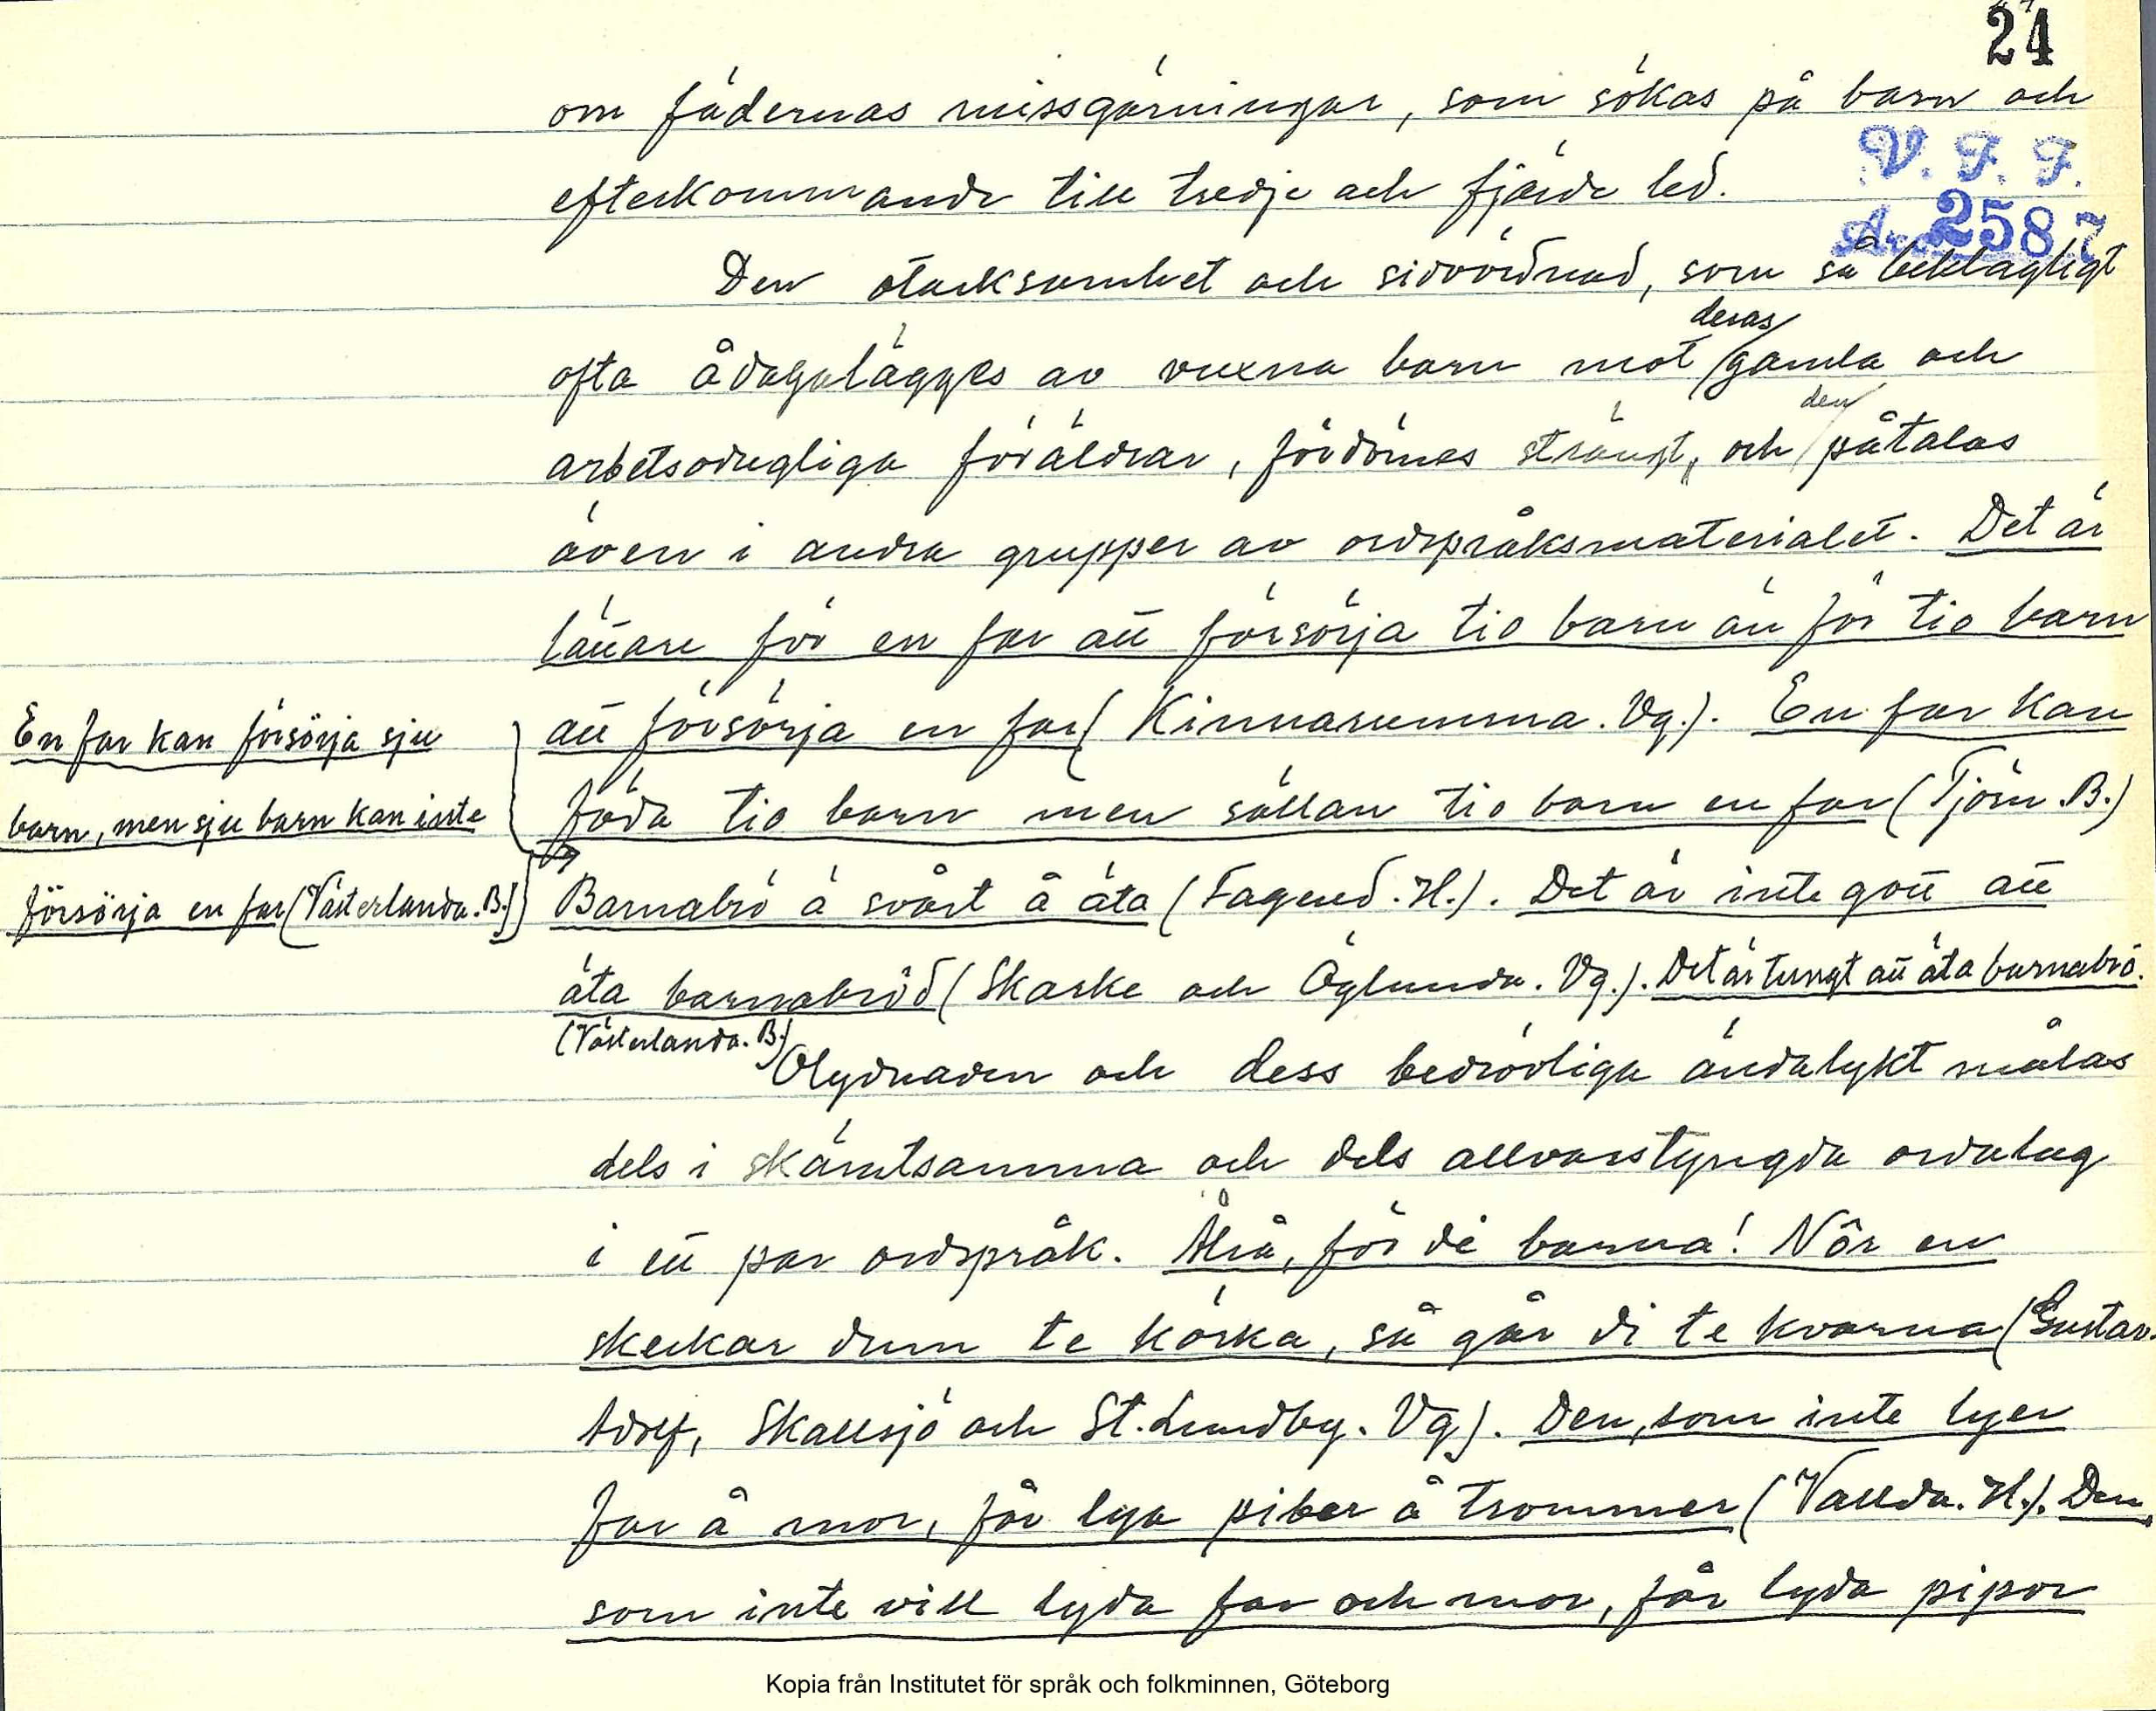 24
om fädernas missgärningar, som sökas på barn och
V. F. F.
efterkommande till tredje och fjärde led.
Acc. 2587
Den otacksamhet och sidvördnad, som så beklagligt
deras
ofta ådagalägges av vuxna barn mot gamla och
den
arbetsodugliga föräldrar, fördömes strängt, och påtalas
även i andra grupper av ordspråksmaterialet. Det är
lättare för en far att försörja tio barn än för tio barn
att försörja en far (Kinnarumma. Vg.). En far kan
föda tio barn men sällan tio barn en far (Tjörn. B.)
En far kan försörja sju
barn, men sju barn kan inte
försörja en far (Västerlanda. B.)
Barnabrö ä svårt å äta (Fagered. H.). Det är inte gott att
äta barnabröd (Skarke och Öglunda. Vg.). Det är tungt att äta barnabrö.
(Västerlanda. B.)
Olydnaden och dess bedrövliga ändalykt målas
dels i skämtsamma och dels allvarstyngda ordalag
i ett par ordspråk. Åhå, för di barna! Nôr en
skeckar dum te körka, så går di te kvarna (Gustav
Adolf, Skallsjö och St. Lundby. Vg). Den, som inte lyer
far å mor, får lya piber å trommer (Vallda. H.). Den,
som inte vill lyda far och mor, får lyda pipor
Kopia från Institutet för språk och folkminnen, Göteborg